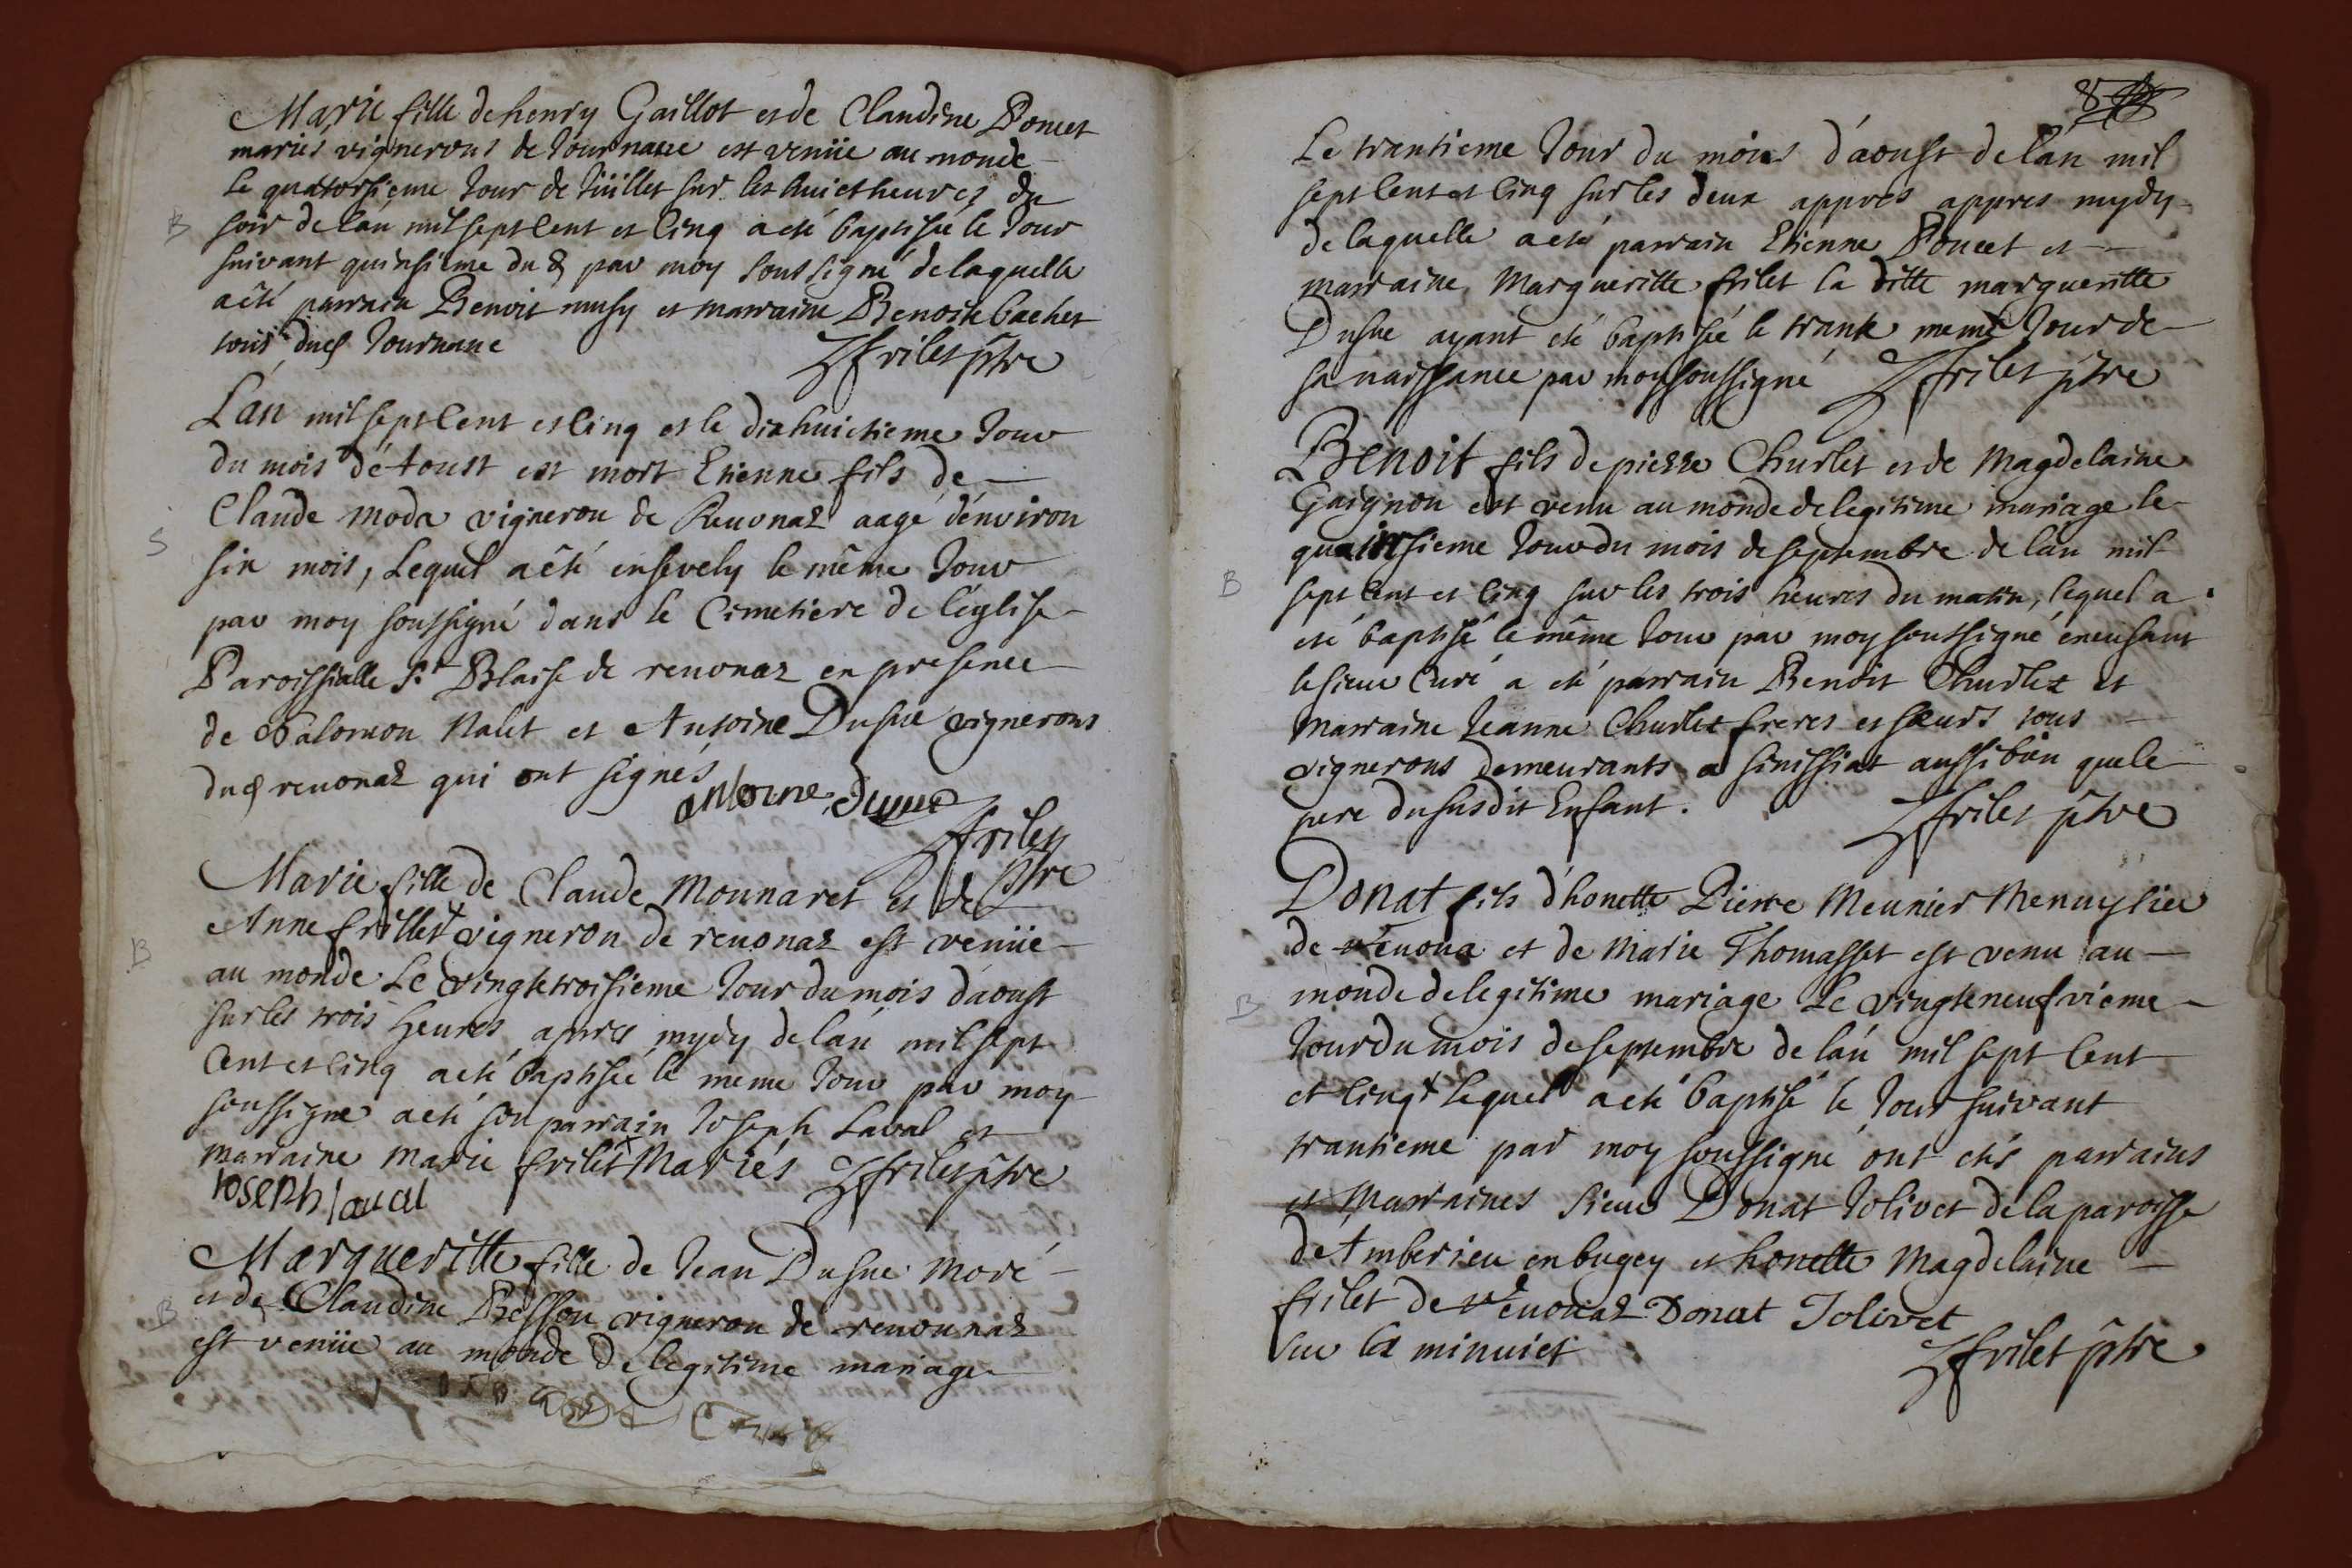 Marie fille de henry Gaillot et de Claudine Poncet
mariés vignerons de Journane est venüe au monde
le quatorsieme Jour de Jüillet sur les huict heures du
B
soir de lán mil sept Cent et Cinq a eté baptisée le Jour
suivant quinsieme du d par moy soussigné de laquelle
a êté parrain Benoit musy et marraine Benoite bachet
tous dud Journane
frilet p̃tre
Lán mil sept Cent et Cinq et le dixhuictieme Jour
du mois d'Aoust est mort Etienne fils de
Claude moda vigneron de Reuonaz aagé d'environ
S
six mois, Lequel a êté ensevely le même Jour
par moy soussigné dans le Cimetiere de l'église
Paroissialle St Blaise de reuonaz en presence
de Salomon Nalet et Antoine Dusue vignerons
dud reuonaz qui ont signés
antoine dusue
frilet
p̃tre
Marie fille de Claude Monnaret et de
Anne frillet vigneron de reuonaz est venüe
B
au monde Le vingtetroisieme Jour du mois d'aoust
sur les trois heures apres mydy de lán mil sept
Cent et Cinq a eté baptisée le meme Jour par moy
soussigné a eté son parrain Joseph Laval et
marraine marie frilet Mariés frilet p̃tre
Joseph laval
Margueritte fille de Jean Dusue moré
B
et de Claudine Besson vigneron de reuounaz
est venüe au monde de legitime mariage
8
Le trantieme Jour du mois d'aoust de lán mil
sept Cent et Cinq sur les deux appres appres mydy
de laquelle a eté parrain Etienne Poncet et
marraine Margueritte frilet la ditte margueritte
Dusue ayant eté baptisée le trante meme Jour de
sa naissance par moy soussigné frilet p̃tre
Benoit fils de pierre Churlet et de Magdelaine
Gaignon est venu au monde de legitime mariage le
quainsieme Jour du mois de septembre de lán mil
B
sept Cent et Cinq sur les trois heures du matin, lequel a
eté baptisé le même Jour par moy soussigné éncusant
le sieur Curé a eté parrain Benoit Churlet et
marraine Jeanne Churlet freres et sœurs tous
vignerons demeurants a sinissiat aussi bien que le
pere du susdit Enfant. frilet p̃tre
Donat fils d'honette Pierre Meunier Menuysier
de reuona et de Marie Thomasset est venu au
B
monde de legitime mariage Le vingteneufvieme
Jour du mois de septembre de lán mil sept Cent
et Cinq lequel a eté baptisé le Jour suivant
trantieme par moy soussigné ont etés parrains
et Marraines sieur Donat Jolivet de la paroisse
d'Amberieu en bugey et honette Magdelaine
frilet de reuonaz Donat Jolivet
sur la minuict
frilet p̃tre